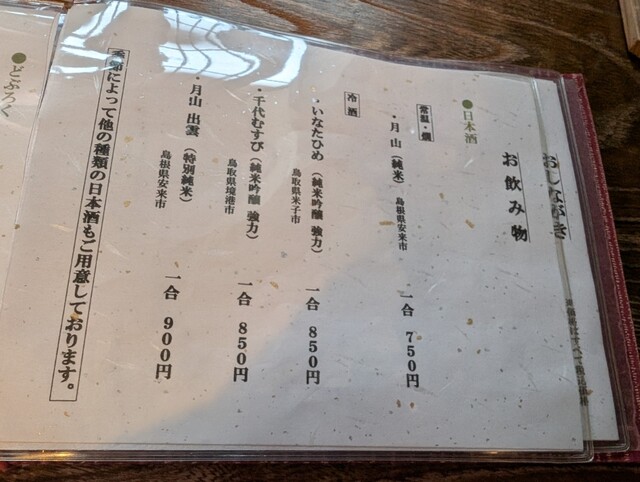 おしながき
お飲み物
●日本酒
常温・燗
・月山（純米） 島根県安来市 一合 750円
冷酒
・いなたひめ（純米吟醸 強力） 鳥取県米子市 一合 850円
・千代むすび（純米吟醸 強力） 鳥取県境港市 一合 850円
・月山 出雲（特別純米） 島根県安来市 一合 900円
季節によって他の種類の日本酒もご用意しております。
●どぶろく